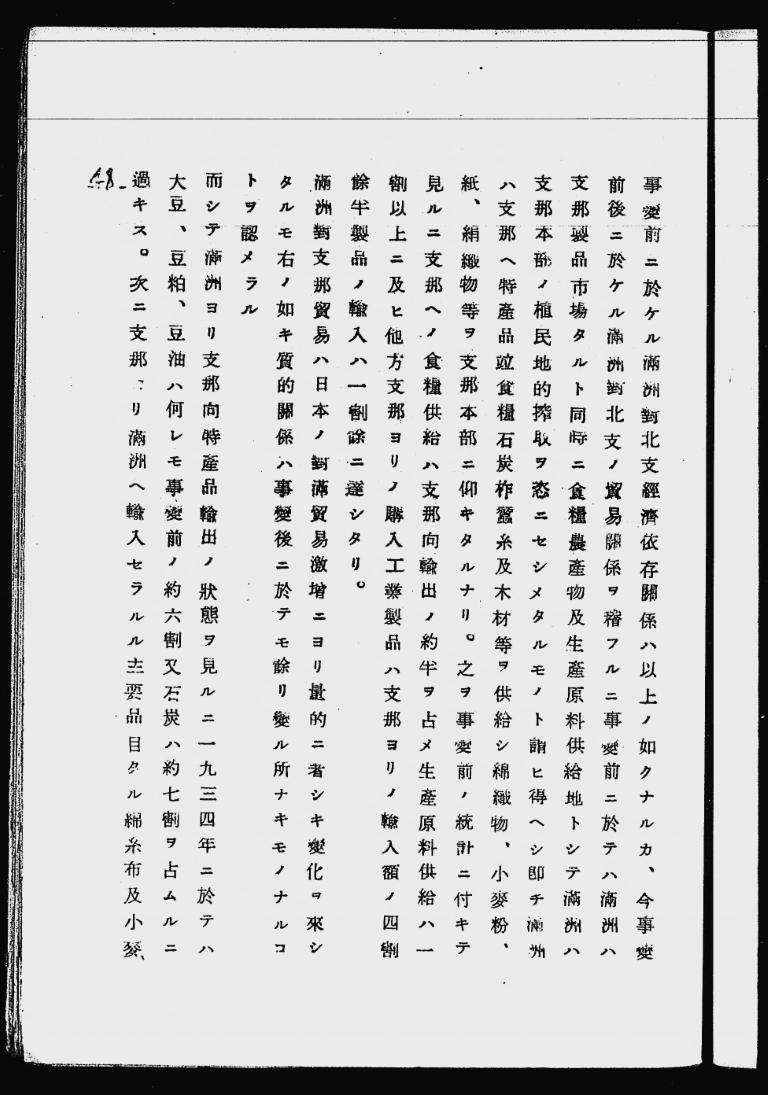 事變前ニ於ケル滿洲對北支經濟依存關係ハ以上ノ如クナルカ、今事變
前後ニ於ケル滿洲對北支ノ貿易關係ヲ稽フルニ事變前ニ於テハ滿洲ハ
支那製品市場タルト同時ニ食糧農產物及生產原料供給地トシテ滿洲ハ
支那本部ノ植民地的搾取ヲ恣ニセシメタルモノト謂ヒ得ヘシ卽チ滿洲
ハ支那ヘ特產品竝食糧石炭柞蠶糸及木材等ヲ供給シ綿織物、小麥粉、
紙、絹織物等ヲ支那本部ニ仰キタルナリ。之ヲ事變前ノ統計ニ付キテ
見ルニ支那ヘノ食糧供給ハ支那向輸出ノ約半ヲ占メ生產原料供給ハ一
割以上ニ及ヒ他方支那ヨリノ購入工業製品ハ支那ヨリノ輸入額ノ四割
餘半製品ノ輸入ハ一割餘ニ達シタリ。
滿洲對支那貿易ハ日本ノ對滿貿易激增ニヨリ量的ニ著シキ變化ヲ來シ
タルモ右ノ如キ質的關係ハ事變後ニ於テモ餘リ變ル所ナキモノナルコ
トヲ認メラル
而シテ滿洲ヨリ支那向特產品輸出ノ狀態ヲ見ルニ一九三四年ニ於テハ
大豆、豆粕、豆油ハ何レモ事變前ノ約六割又石炭ハ約七割ヲ占ムルニ
過キス。次ニ支那リ滿洲ヘ輸入セラルル主要品目タル綿糸布及小麥、
48